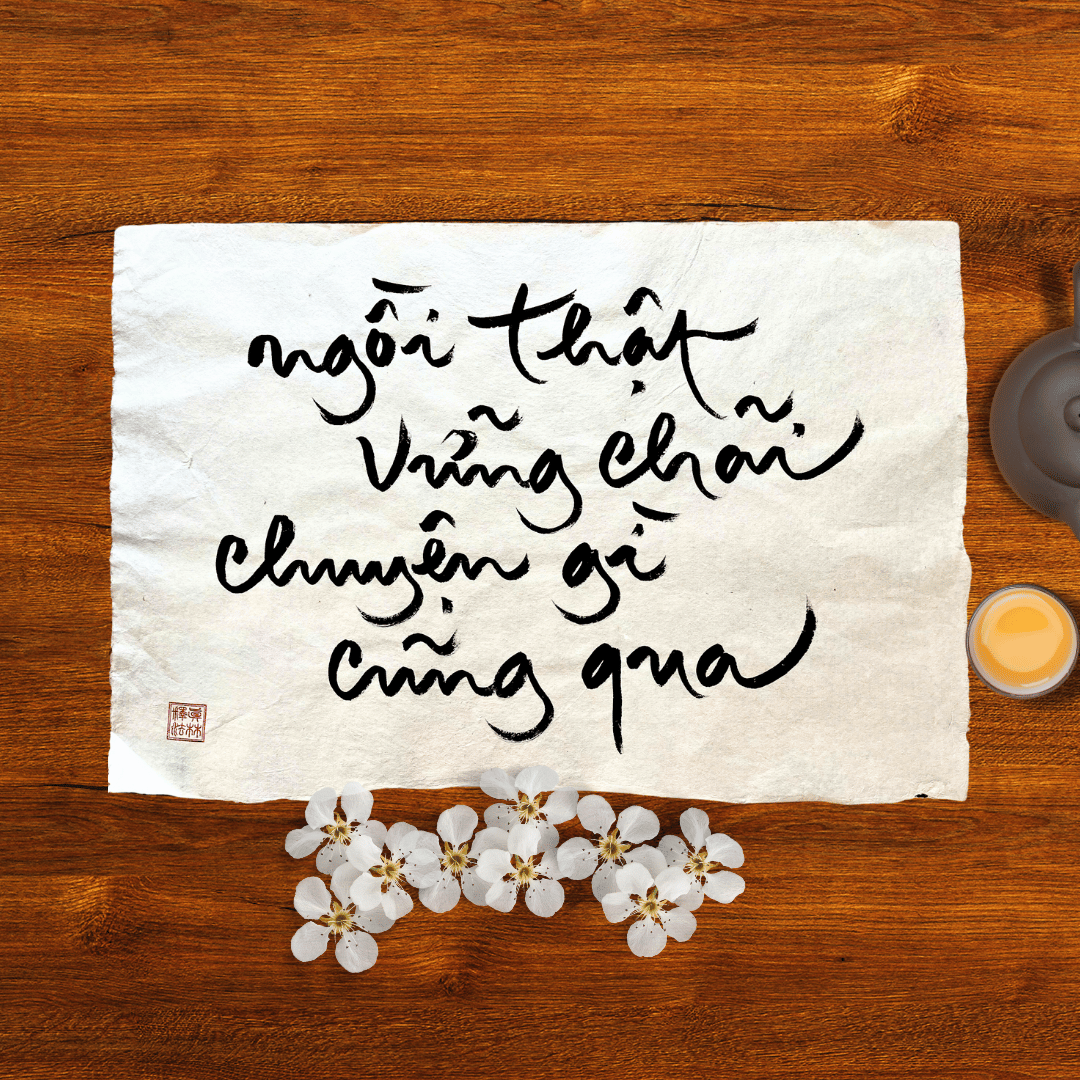 ngồi thật
vững chãi
chuyện gì
cũng qua